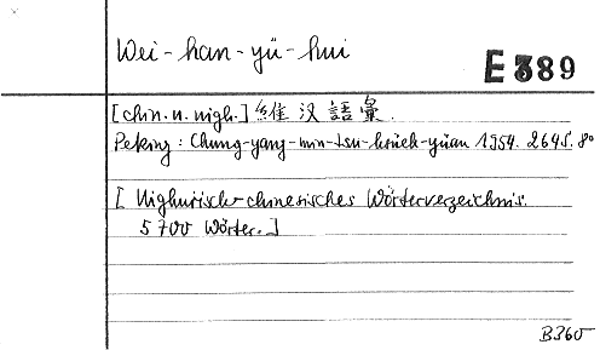 Wei-han-yü-hui
E 389
[chin. u. uigh.] 維汉語彙.
Peking: Chung-yang-min-tsu-hsüeh-yüan 1954. 264 S. 8°
[Uighurisch-chinesisches Wörterverzeichnis.
5700 Wörter.]
B360